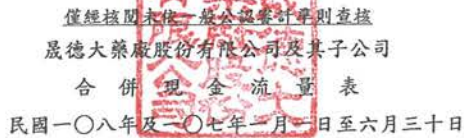 僅經核閱未依一般公認審計準則查核
晟德大藥廠股份有限公司及其子公司
合併現金流量表
民國一〇八年及一〇七年一月一日至六月三十日